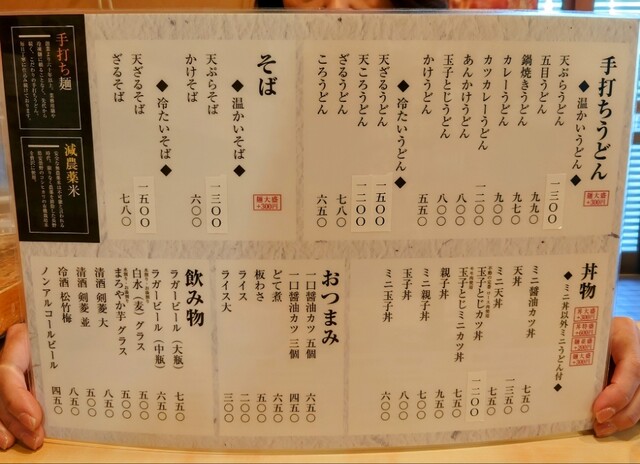 手打ちうどん
麺大盛
+300円
◆温かいうどん◆
天ぷらうどん 一三〇〇
五目うどん 九九〇
鍋焼きうどん 九七〇
カレーうどん
カツカレーうどん 一二〇〇
あんかけうどん 八〇〇
玉子とじうどん 八〇〇
かけうどん 五五〇
◆冷たいうどん◆
天ざるうどん 一五〇〇
天ころうどん 一二〇〇
ざるうどん 七八〇
ころうどん 六五〇
そば
麺大盛
+300円
◆温かいそば◆
天ぷらそば 一三〇〇
かけそば 六〇〇
◆冷たいそば◆
天ざるそば 一五〇〇
ざるそば 七八〇
手打ち麺
減農薬米
丼物
◆ミニ丼以外ミニうどん付◆
ミニ醤油カツ丼 七五〇
天丼 一三五〇
ミニ天丼 七五〇
玉子とじカツ丼 一二〇〇
玉子とじミニカツ丼 七五〇
親子丼 九五〇
ミニ親子丼 七〇〇
玉子丼 八〇〇
ミニ玉子丼 六〇〇
おつまみ
一口醤油カツ 五個 六五〇
一口醤油カツ 三個 四五〇
どて煮 六五〇
板わさ 五〇〇
ライス 二〇〇
ライス大 三〇〇
飲み物
ラガービール(大瓶) 七五〇
ラガービール(中瓶) 六五〇
白水(麦)グラス 五〇〇
まろやか芋 グラス 五〇〇
清酒 剣菱 大 八五〇
清酒 剣菱 並 五〇〇
冷酒 松竹梅 八五〇
ノンアルコールビール 四五〇